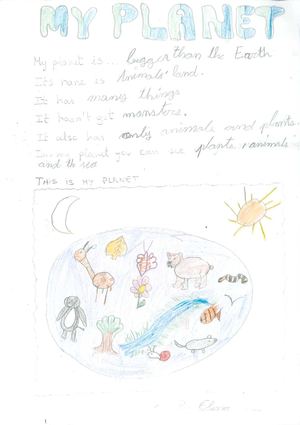 MY PLANET
My planet is... bigger than the Earth
It's name is Animals' land.
It has many things
It hasn't got monsters.
It also has only animals and plants.
In my planet you can see plants, animals
and the sea
THIS IS MY PLANET